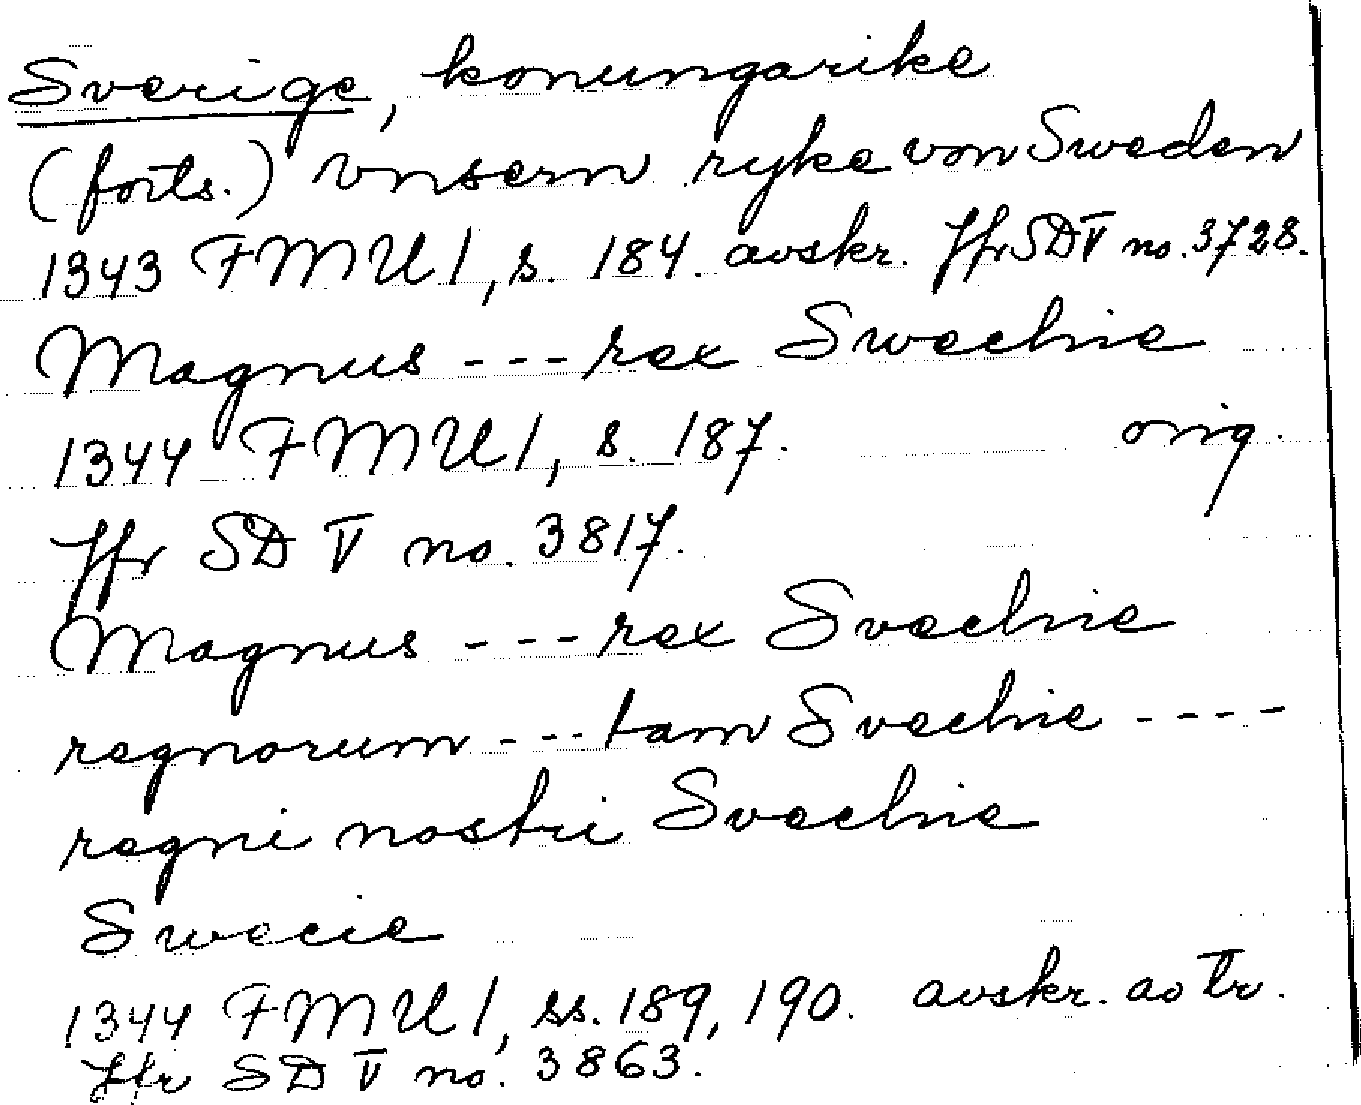 Sverige, konungarike
(forts.) vnsern ryke von Sweden
1343 FMU 1, s. 184. avskr. Jfr SD V no. 3728.
Magnus --- rex Swechie
1344 FMU 1, s. 187. orig.
Jfr SD V no. 3817.
Magnus --- rex Svechie
regnorum --- tam Svechie ----
regni nostri Svechie
Swecie
1344 FMU 1, ss. 189, 190. avskr. av tr.
Jfr SD V no. 3863.